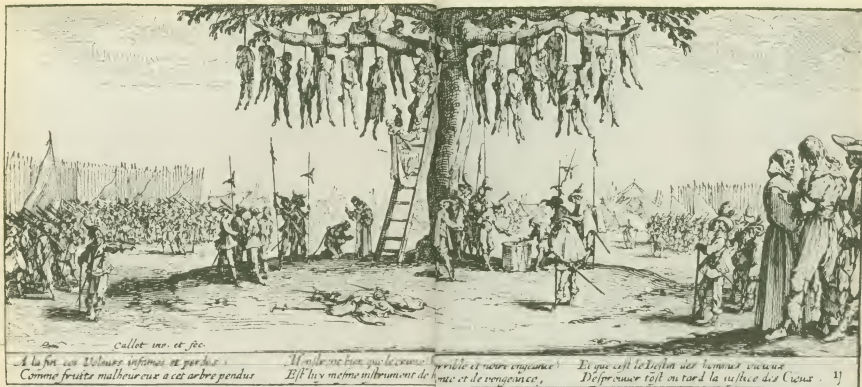 Callot inv. et fec.
A la fin ces Voleurs infames et perdus,
Comme fruits malheureux a cet arbre pendus
Monstrent bien que le crime horrible et noire engeance
Est luy mesme instrument de honte et de vengeance,
Et que cest le Destin des hommes vicieux
Desprouver tost ou tard la iustice des Cieux.